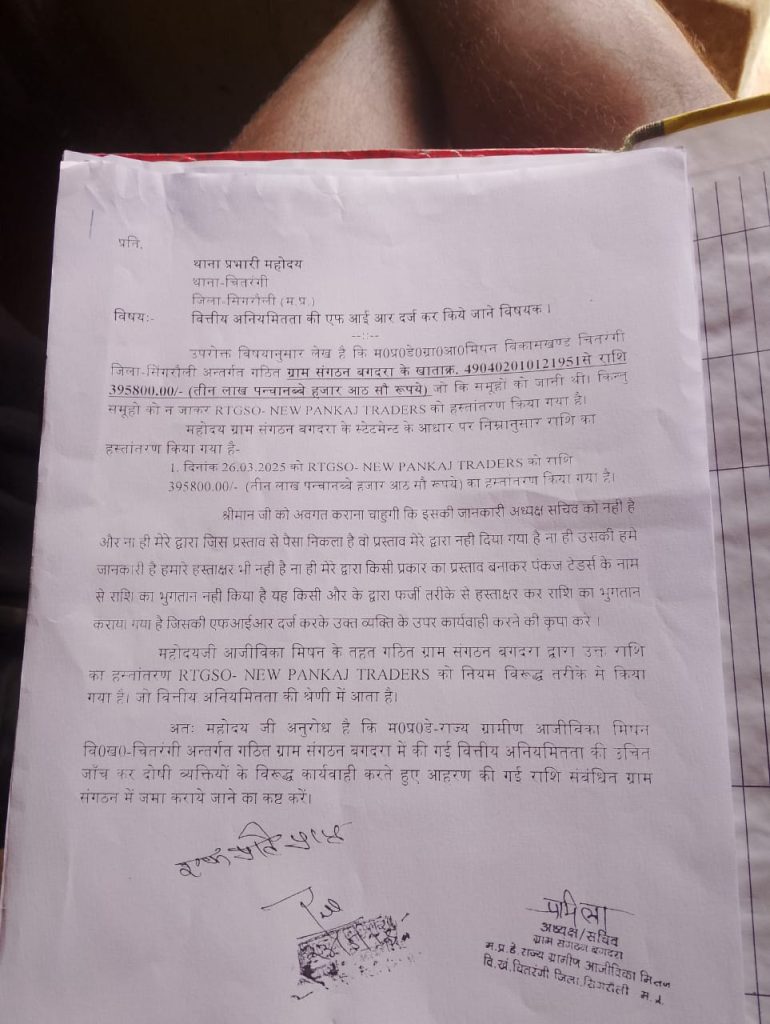 प्रति,
थाना प्रभारी महोदय
थाना-चितरंगी
जिला-सिगरौली (म.प्र.)
विषयः- वित्तीय अनियमितता की एफ आई आर दर्ज कर किये जाने विषयक।
--::--
उपरोक्त विषयानुसार लेख है कि म0प्र0डे0ग्रा0आ0मिषन विकासखण्ड चितरंगी
जिला-सिगरौली अन्तर्गत गठित ग्राम संगठन बगदरा के खाताक्र. 490402010121951से राशि
395800.00/- (तीन लाख पन्चानब्बे हजार आठ सौ रूपये) जो कि समूहों को जानी थी। किन्तु
समूहों को न जाकर RTGSO- NEW PANKAJ TRADERS को हस्तांतरण किया गया है।
महोदय ग्राम संगठन बगदरा के स्टेटमेन्ट के आधार पर निम्नानुसार राशि का
हस्तांतरण किया गया है-
1. दिनांक 26.03.2025 को RTGSO- NEW PANKAJ TRADERS को राशि
395800.00/- (तीन लाख पन्चानब्बे हजार आठ सौ रूपये) का हस्तांतरण किया गया है।
श्रीमान जी को अवगत कराना चाहुगी कि इसकी जानकारी अध्यक्ष सचिव को नही है
और ना ही मेरे द्वारा जिस प्रस्ताव से पैसा निकला है वो प्रस्ताव मेरे द्वारा नही दिया गया है ना ही उसकी हमे
जानकारी है हमारे हस्ताक्षर भी नही है ना ही मेरे द्वारा किसी प्रकार का प्रस्ताव बनाकर पंकज टेडर्स के नाम
से राशि का भुगतान नही किया है यह किसी और के द्वारा फर्जी तरीके से हस्ताक्षर कर राशि का भुगतान
कराया गया है जिसकी एफआईआर दर्ज करके उक्त व्यक्ति के उपर कार्यवाही करने की कृपा करे ।
महोदयजी आजीविका मिषन के तहत गठित ग्राम संगठन बगदरा द्वारा उक्त राशि
का हस्तांतरण RTGSO- NEW PANKAJ TRADERS को नियम विरूद्ध तरीके से किया
गया है। जो वित्तीय अनियमितता की श्रेणी में आता है।
अतः महोदय जी अनुरोध है कि म0प्र0डे-राज्य ग्रामीण आजीविका मिषन
वि0ख0-चितरंगी अन्तर्गत गठित ग्राम संगठन बगदरा में की गई वित्तीय अनियमितता की उचित
जाँच कर दोषी व्यक्तियों के विरूद्ध कार्यवाही करते हुए आहरण की गई राशि संबंधित ग्राम
संगठन में जमा कराये जाने का कष्ट करें।
प्रमिला
अध्यक्ष/सचिव
ग्राम संगठन बगदरा
म.प्र.डे.राज्य ग्रामीण आजीविका मिशन
वि.खं.चितरंगी जिला.सिंगरौली म.प्र.